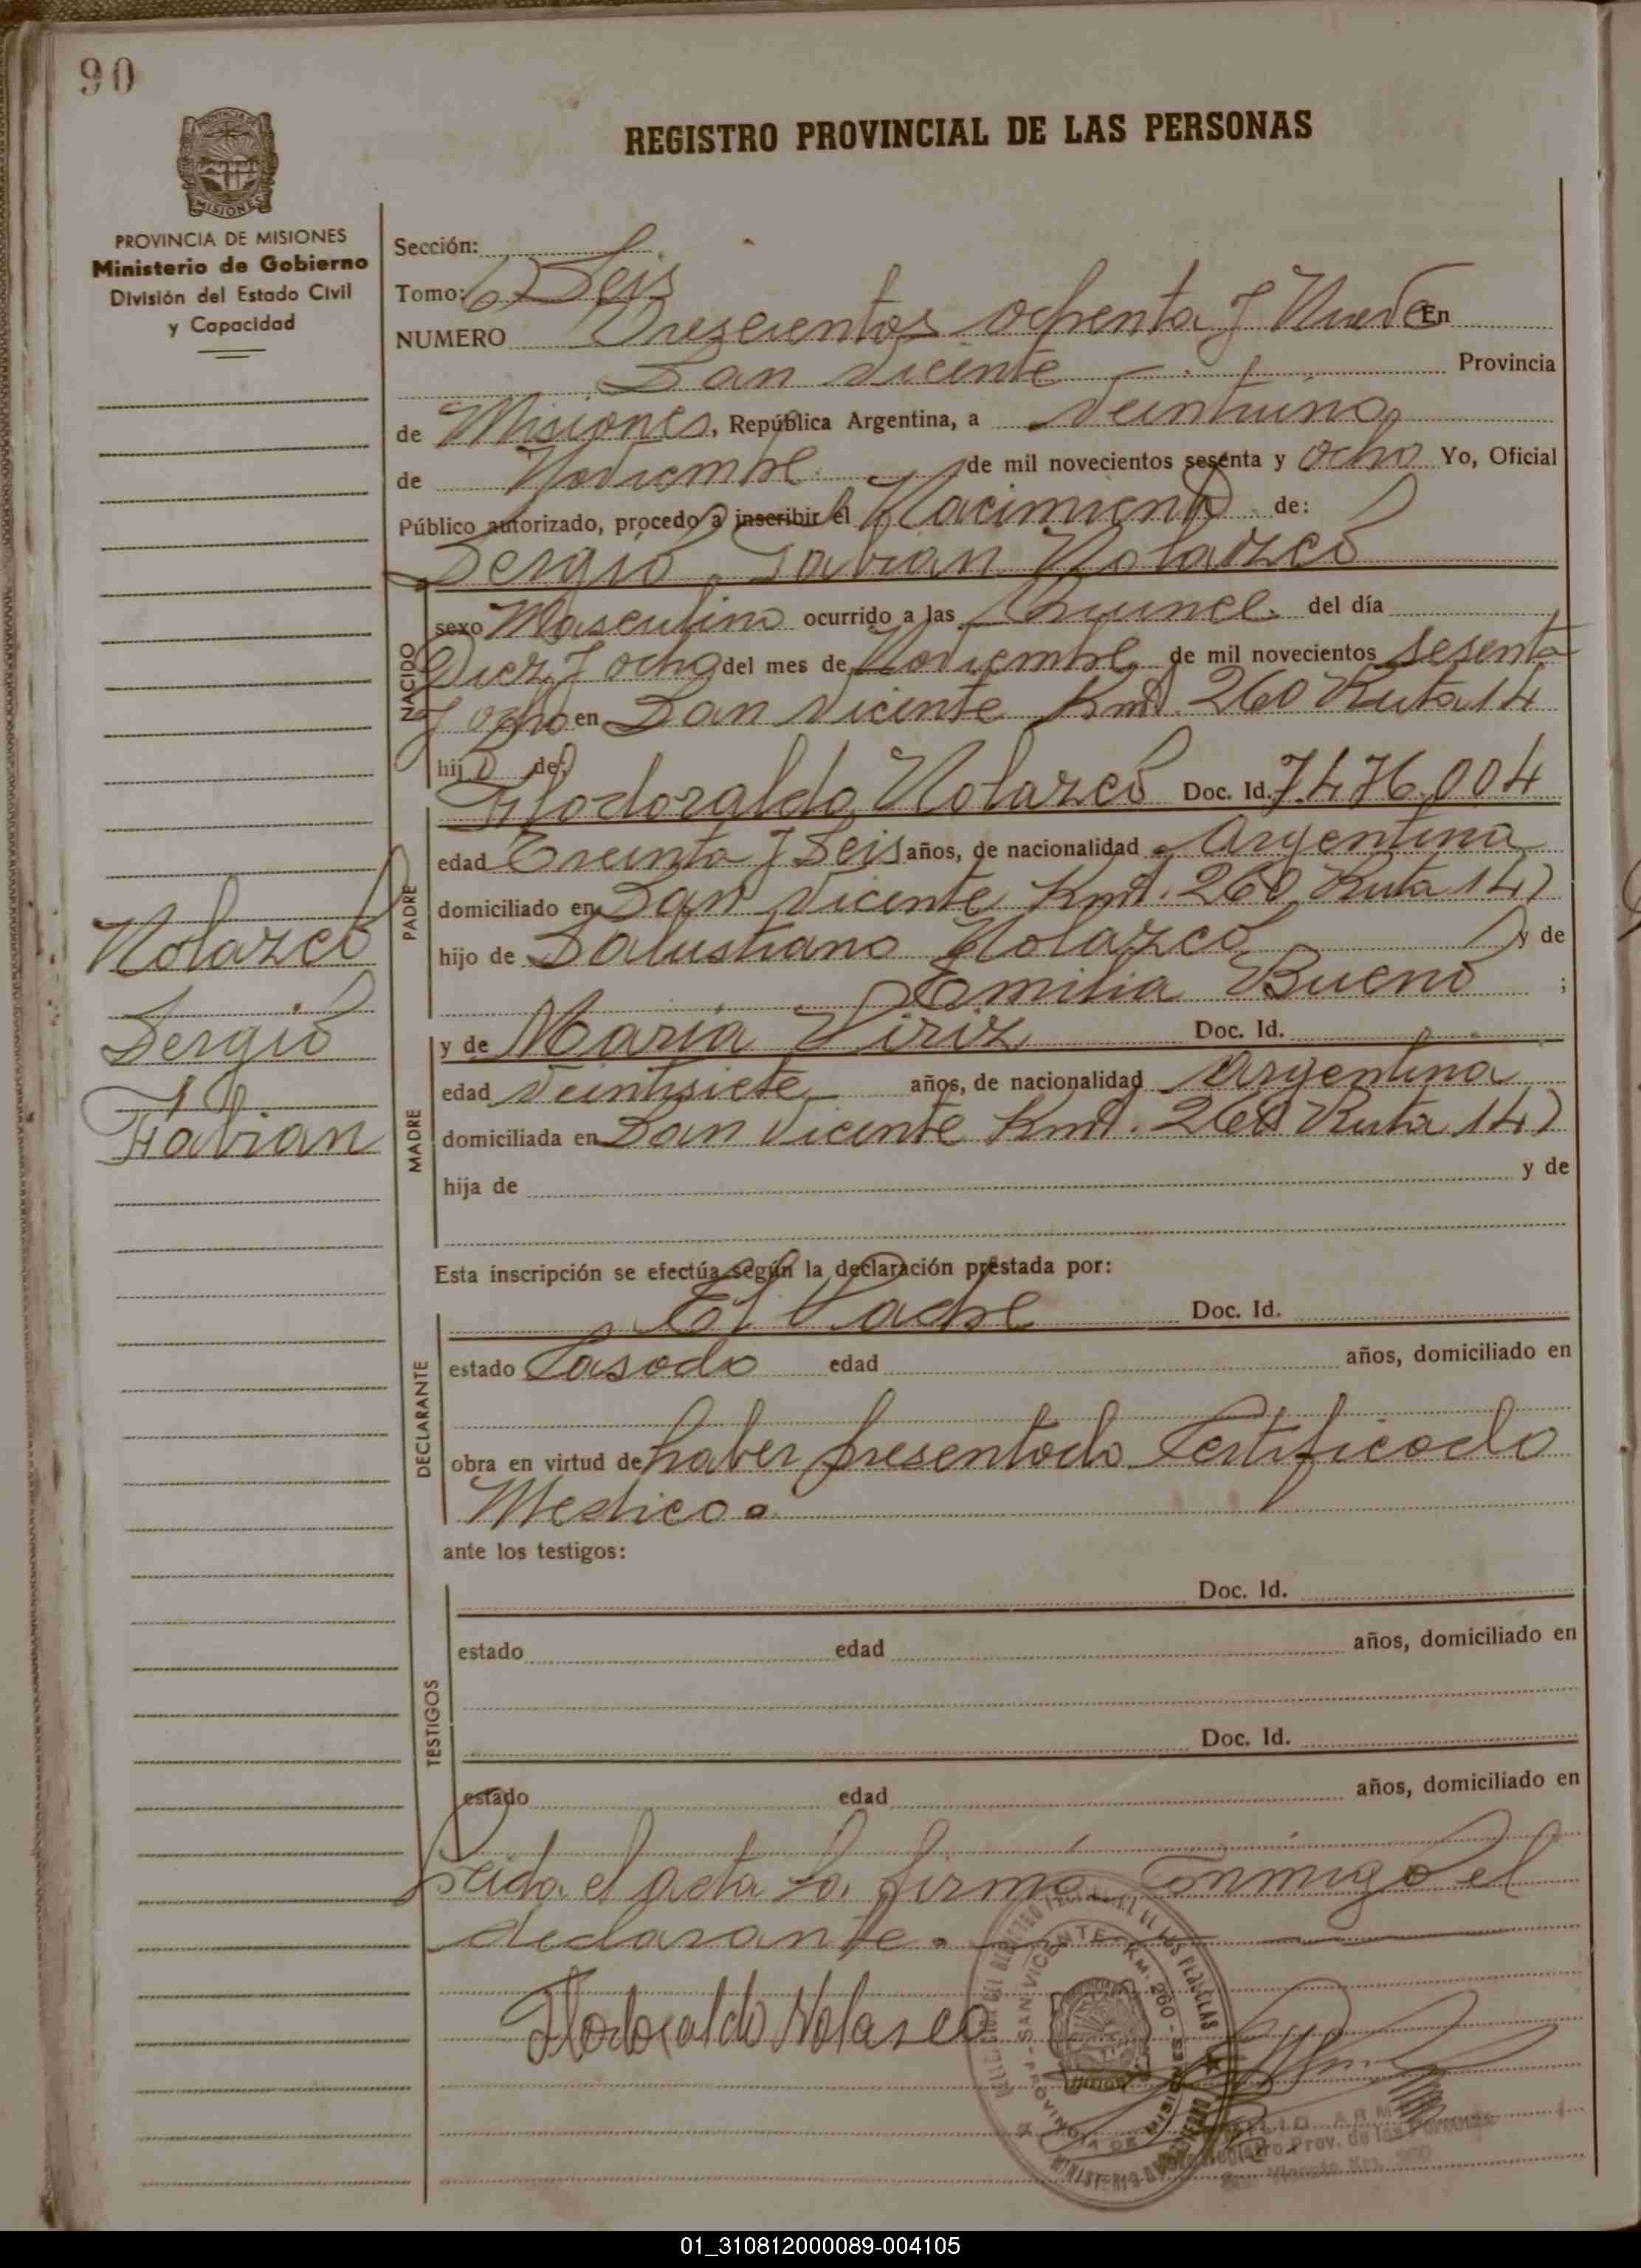 90
REGISTRO PROVINCIAL DE LAS PERSONAS
MISIONES
PROVINCIA DE MISIONES
Ministerio de Gobierno
División del Estado Civil
y Capacidad
Sección:
Tomo: 6) Seis
NUMERO Trescientos ochenta y Nueve En
San Vicente Provincia
de Misiones, República Argentina, a Veintiuno
de Noviembre de mil novecientos sesenta y ocho Yo, Oficial
Público autorizado, procedo a inscribir el Nacimiento de:
Sergio Fabian Nolazco
NACIDO
sexo Masculino ocurrido a las Quince del día
Diez y ocho del mes de Noviembre de mil novecientos sesenta
y ocho en San Vicente Km. 260 Ruta 14
hijo de:
Flodoraldo Nolazco Doc. Id. 7.476.004
PADRE
edad Treinta y Seis años, de nacionalidad Argentina
domiciliado en San Vicente Km. 260 Ruta 14)
hijo de Salustiano Nolazco y de
Emilia Bueno ;
Nolazco
Sergio
Fabian
MADRE
y de Maria Viriz Doc. Id.
edad Veintisiete años, de nacionalidad Argentina
domiciliada en San Vicente Km. 260 Ruta 14)
hija de y de
Esta inscripción se efectúa según la declaración prestada por:
DECLARANTE
El Padre Doc. Id.
estado Casado edad años, domiciliado en
obra en virtud de haber presentado Certificado
Medico
ante los testigos:
TESTIGOS
Doc. Id.
estado edad años, domiciliado en
Doc. Id.
estado edad años, domiciliado en
Leida el acta la firma conmigo el
declarante.
Flodoraldo Nolazco
SAN VICENTE - KM. 260 - MISIONES
PROVINCIA DE
Registro Prov. de las Personas
San Vicente Km. 260
01_310812000089-004105